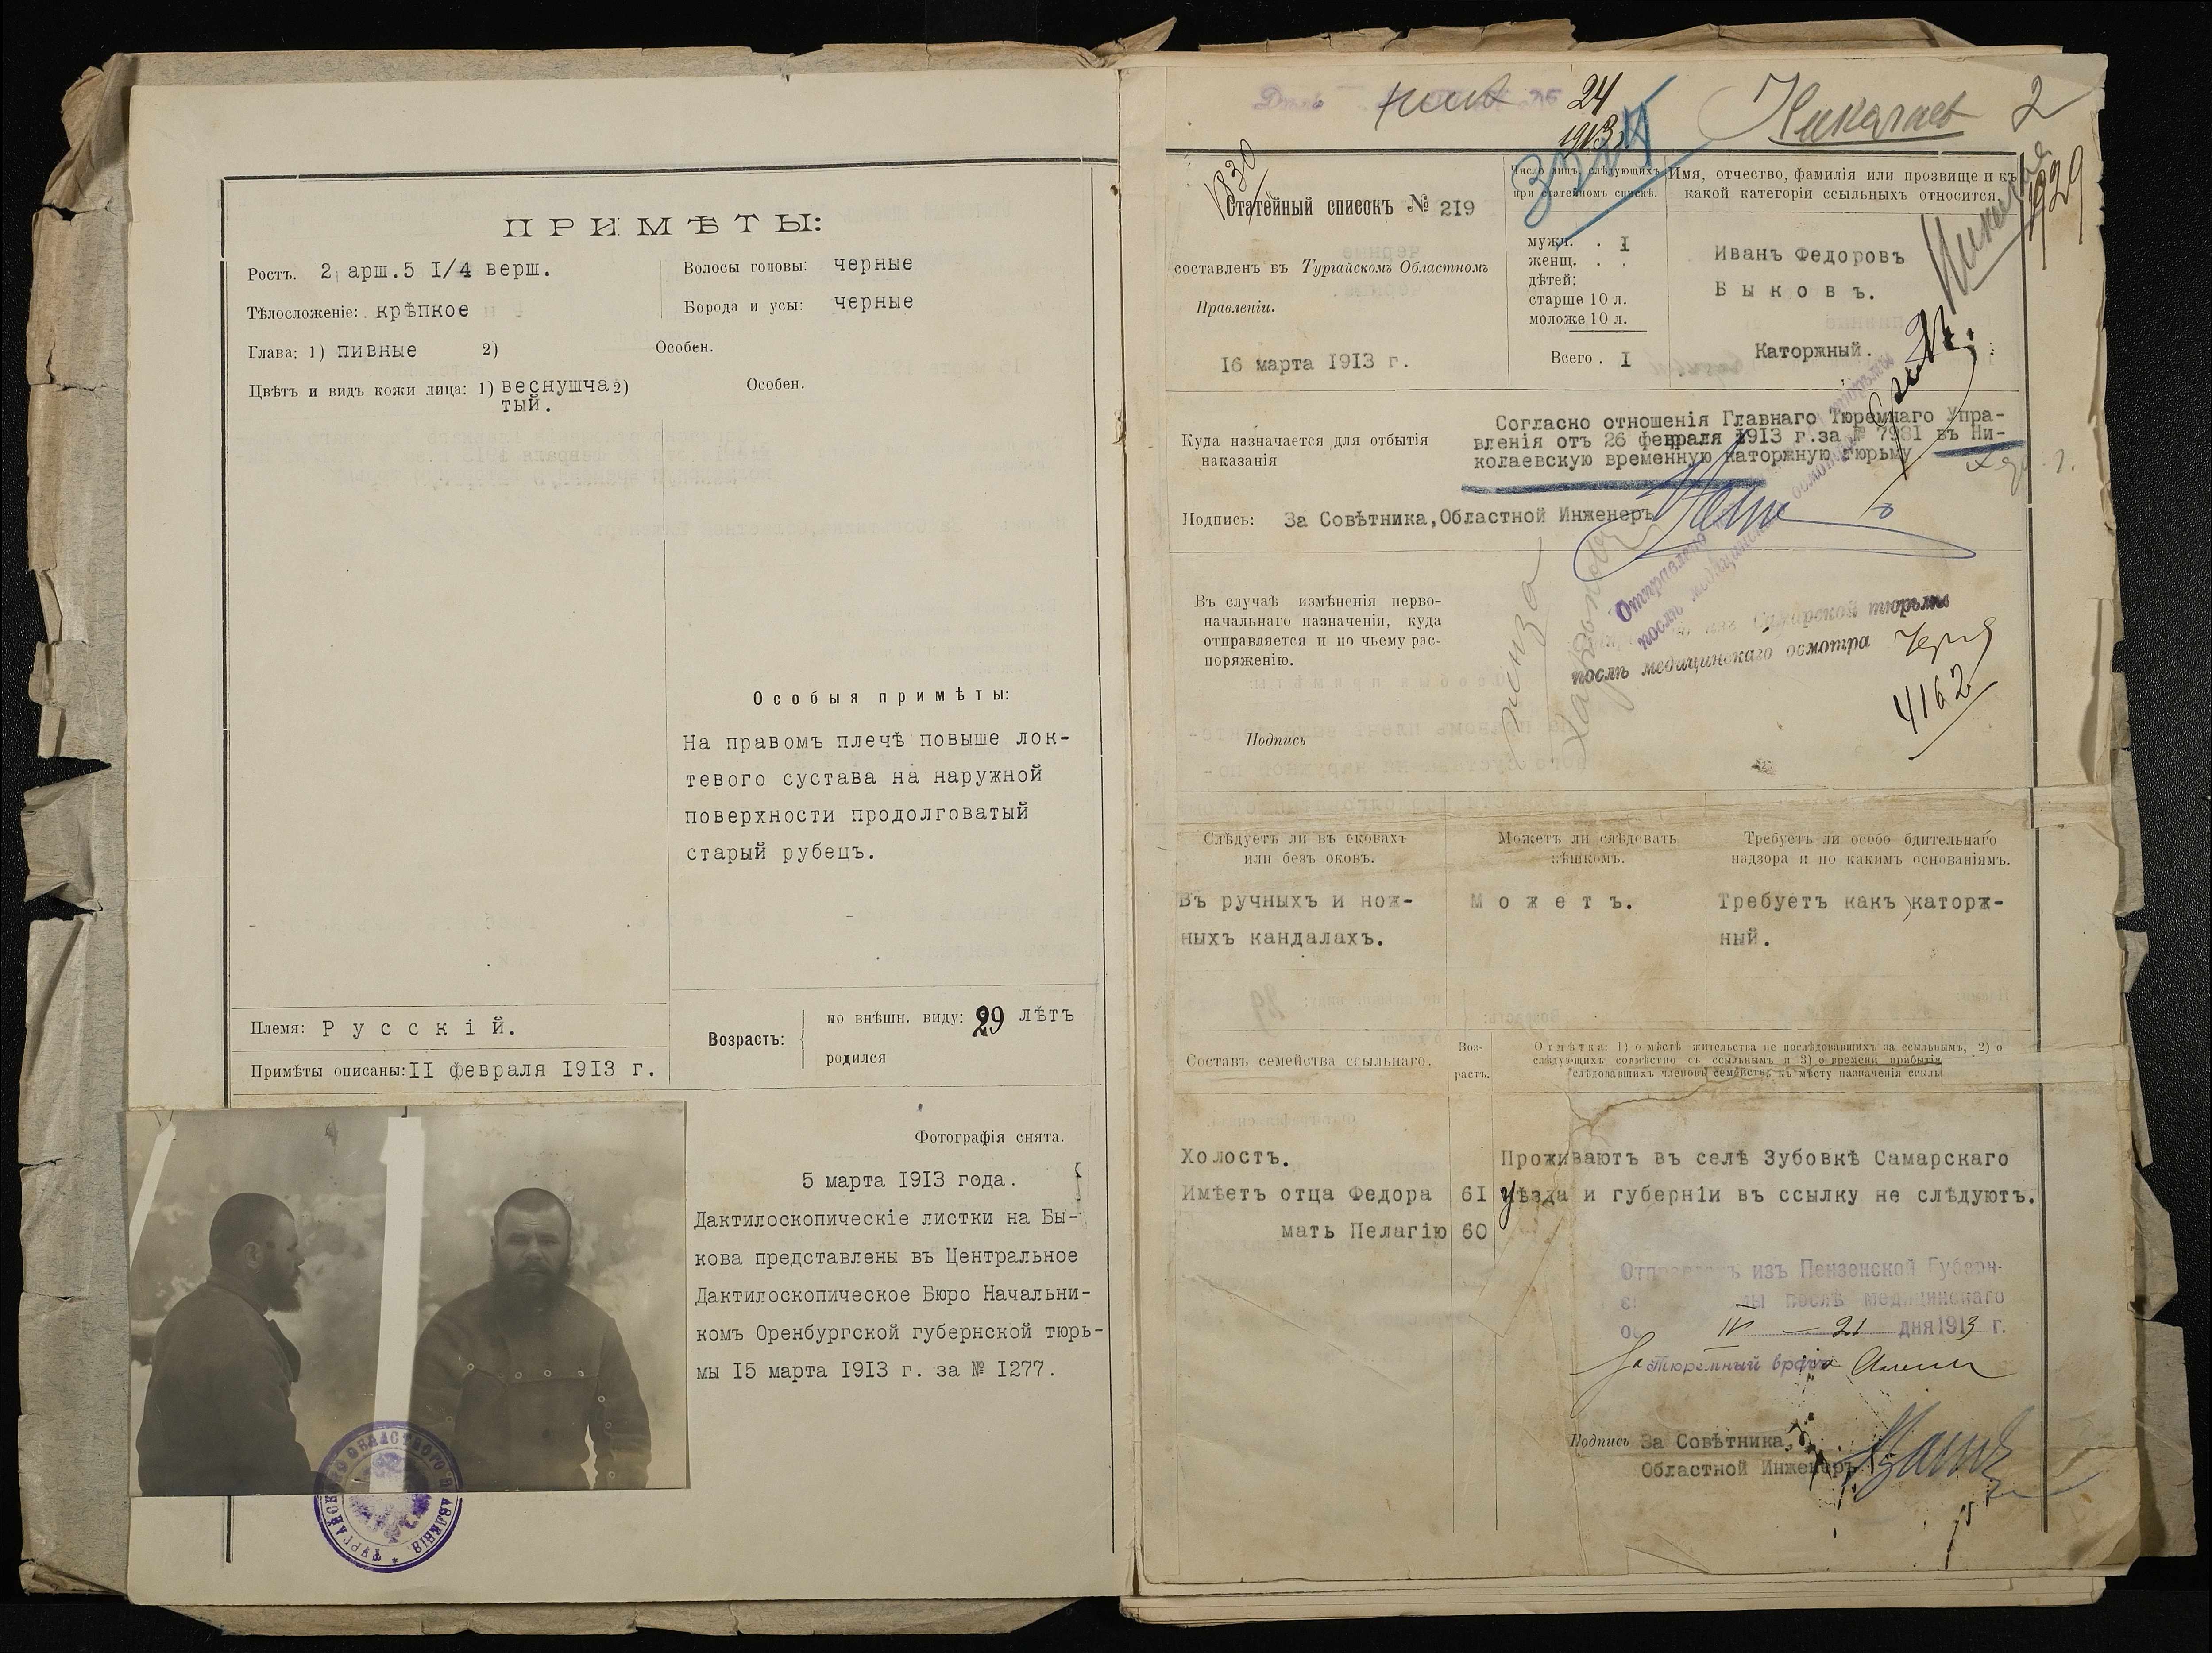 ПРИМѢТЫ:
Ростъ. 2 арш. 5 I/4 верш.
Волосы головы: черные
Тѣлосложеніе: крѣпкое
Борода и усы: черные
Глава: 1) пивные 2) Особен.
Цвѣтъ и видъ кожи лица: 1) веснушча 2) Особен.
тый.
Особыя примѣты:
На правомъ плечѣ повыше лок-
тевого сустава на наружной
поверхности продолговатый
старый рубецъ.
Племя: Русскій.
Примѣты описаны: II февраля 1913 г.
Возрастъ: по внѣшн. виду: 29 лѣтъ
родился
Фотографія снята.
5 марта 1913 года.
Дактилоскопическіе листки на Бы-
кова представлены въ Центральное
Дактилоскопическое Бюро Начальни-
комъ Оренбургской губернской тюрь-
мы 15 марта 1913 г. за № 1277.
24
1913
Николаев 2
1830
1929
Статейный списокъ № 219
составленъ въ Тургайскомъ Областномъ
Правленіи.
16 марта 1913 г.
Число лицъ, слѣдующихъ
при статейномъ спискѣ.
мужч. . I
женщ. . .
дѣтей:
старше 10 л.
моложе 10 л.
Всего . I
Имя, отчество, фамилія или прозвище и къ
какой категоріи ссыльныхъ относится.
Иванъ Федоровъ
Быковъ.
Каторжный.
Куда назначается для отбытія
наказанія
Согласно отношенія Главнаго Тюремнаго Упра-
вленія отъ 26 февраля 1913 г. за № 7981 въ Ни-
колаевскую временную каторжную тюрьму
Подпись: За Совѣтника, Областной Инженеръ
Въ случаѣ измѣненія перво-
начальнаго назначенія, куда
отправляется и по чьему рас-
поряженію.
Подпись
Пенза
Отправлено
послѣ медицинскаго осмотра
изъ Самарской тюрьмы
послѣ медицинскаго осмотра
4162
Слѣдуетъ ли въ оковахъ
или безъ оковъ.
Въ ручныхъ и нож-
ныхъ кандалахъ.
Можетъ ли слѣдовать
пѣшкомъ.
Можетъ.
Требуетъ ли особо бдительнаго
надзора и по какимъ основаніямъ.
Требуетъ какъ каторж-
ный.
Составъ семейства ссыльнаго.
Воз-
растъ.
Отмѣтка: 1) о мѣстѣ жительства не послѣдовавшихъ за ссыльнымъ, 2) о
слѣдующихъ совмѣстно съ ссыльнымъ и 3) о времени прибытія
слѣдовавшихъ членовъ семейства къ мѣсту назначенія ссылы
Холостъ.
Имѣетъ отца Федора 61
мать Пелагію 60
Проживаютъ въ селѣ Зубовкѣ Самарскаго
уѣзда и губерніи въ ссылку не слѣдуютъ.
Отправленъ изъ Пензенской Губерн-
послѣ медицинскаго
IV — 21 дня 1913 г.
За Тюремный врачъ
Подпись За Совѣтника,
Областной Инженеръ
ТУРГАЙСКАГО ОБЛАСТНОГО ПРАВЛЕНІЯ